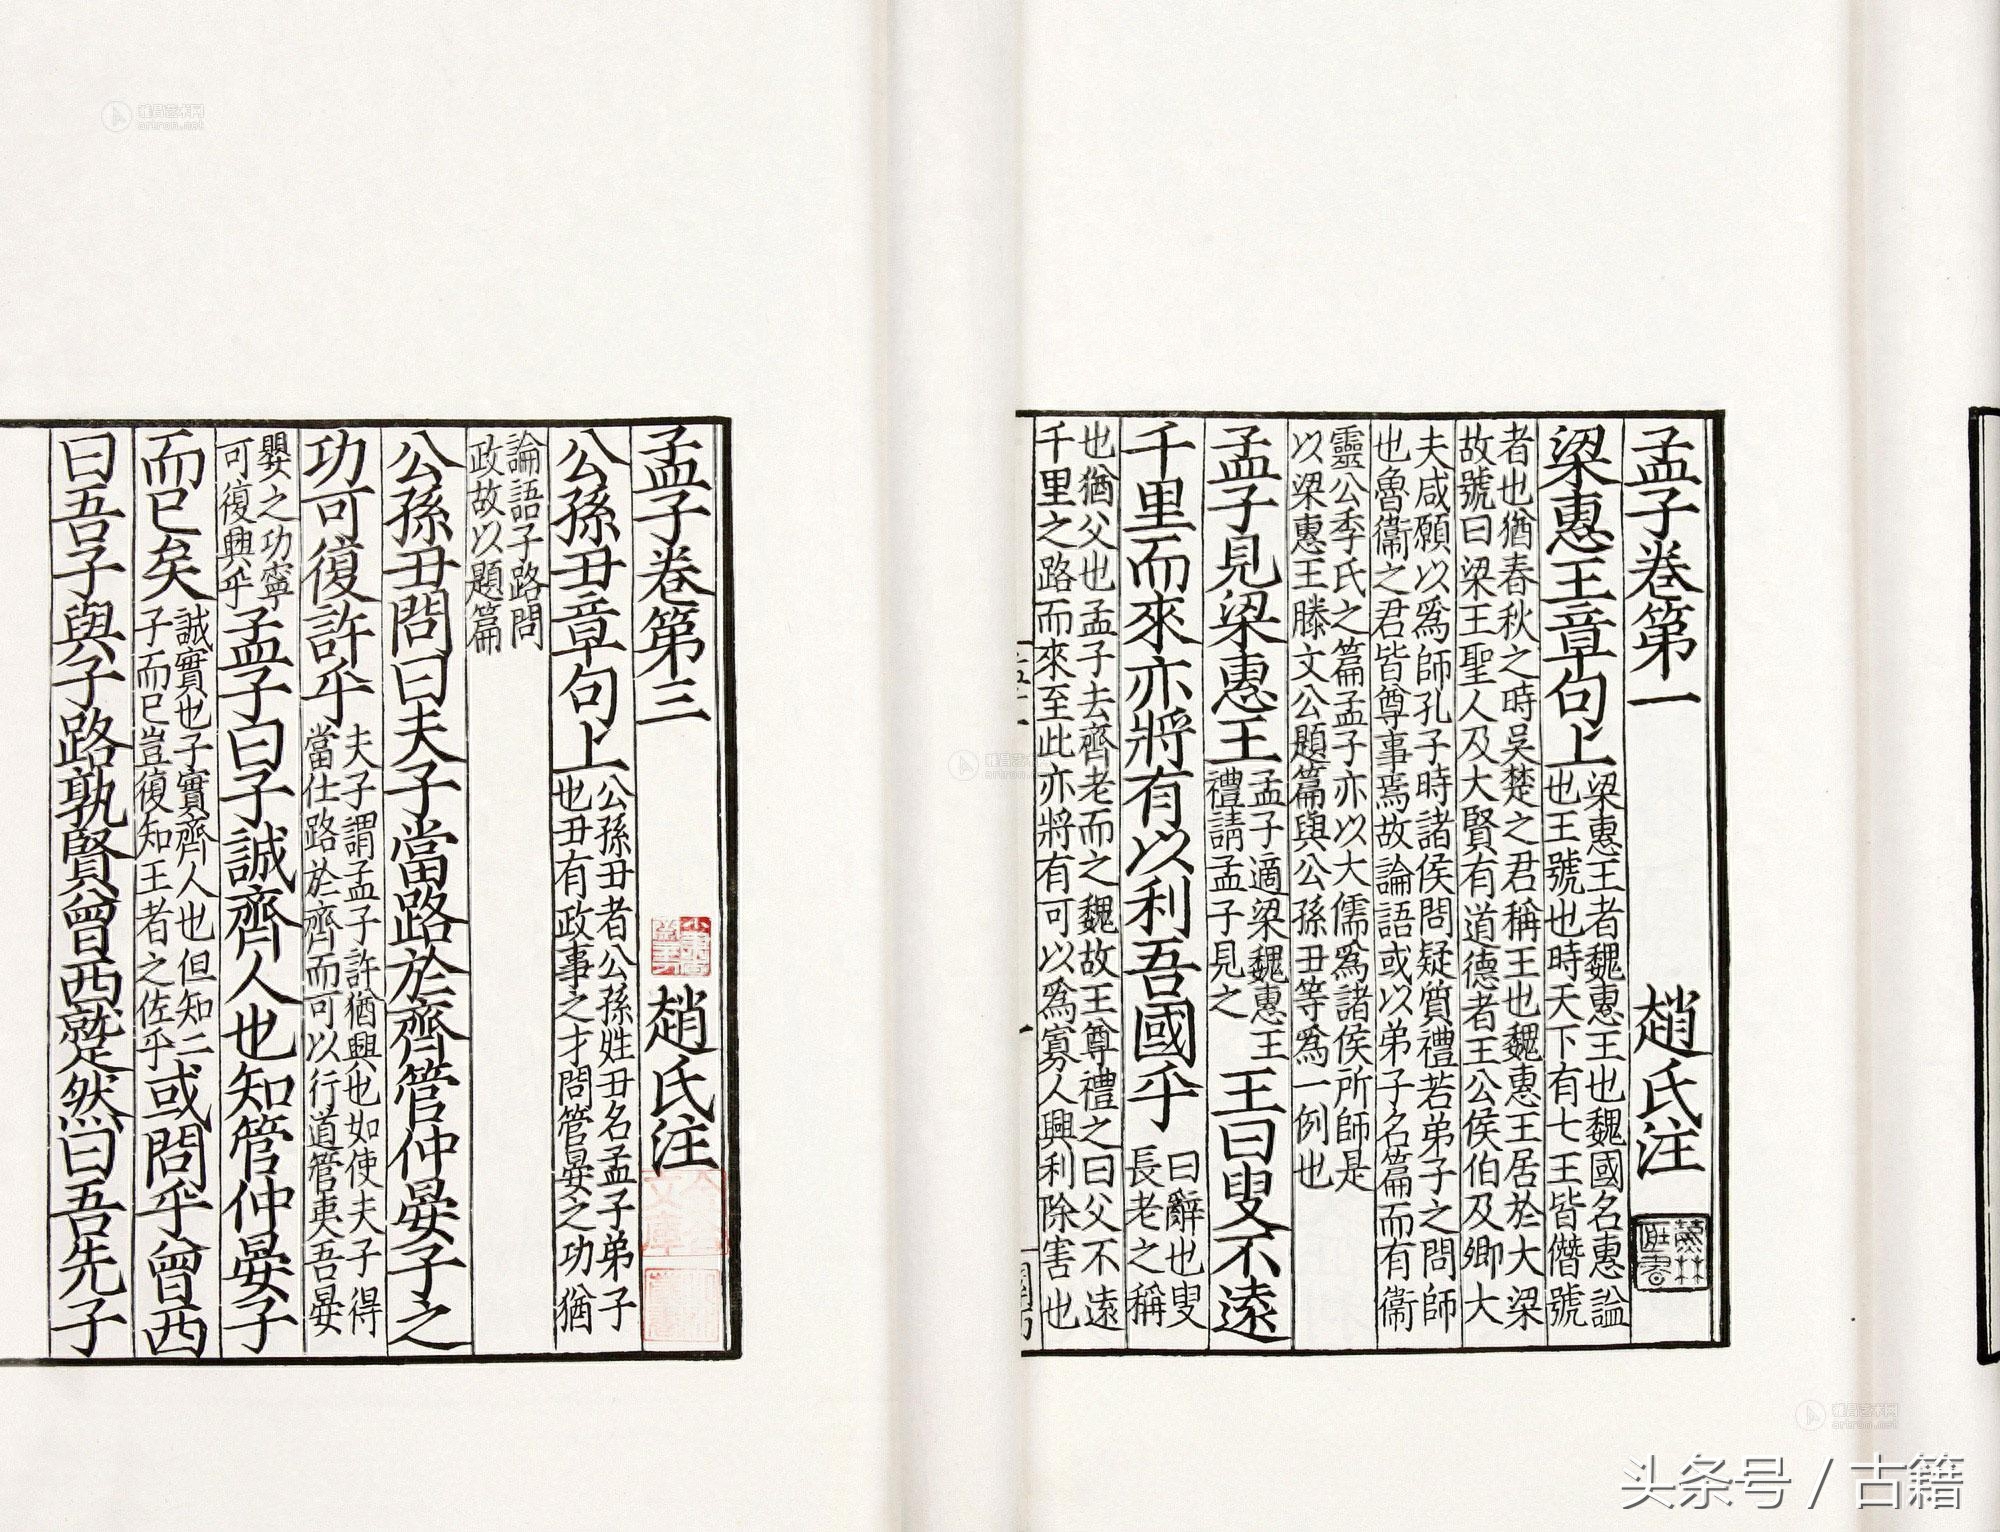 孟子卷第一
趙氏注
梁惠王章句上
梁惠王者魏惠王也魏國名惠謚
也王號也時天下有七王皆僭號
者也猶春秋之時吳楚之君稱王也魏惠王居於大梁
故號曰梁王聖人及大賢有道德者王公侯伯及卿大
夫咸願以爲師孔子時諸侯問疑質禮若弟子之問師
也魯衞之君皆尊事焉故論語或以弟子名篇而有衞
靈公季氏之篇孟子亦以大儒爲諸侯所師是
以梁惠王滕文公題篇與公孫丑等爲一例也
孟子見梁惠王
孟子適梁魏惠王
禮請孟子見之
王曰叟不遠
千里而來亦將有以利吾國乎
曰辭也叟
長老之稱
也猶父也孟子去齊老而之魏故王尊禮之曰父不遠
千里之路而來至此亦將有可以爲寡人興利除害也
孟子卷第三
趙氏注
公孫丑章句上
公孫丑者公孫姓丑名孟子弟子
也丑有政事之才問管晏之功猶
論語子路問
政故以題篇
公孫丑問曰夫子當路於齊管仲晏子之
功可復許乎
夫子謂孟子許猶興也如使夫子得
當仕路於齊而可以行道管夷吾晏
嬰之功寧
可復興乎
孟子曰子誠齊人也知管仲晏子
而已矣
誠實也子實齊人也但知二
子而已豈復知王者之佐乎
或問乎曾西
曰吾子與子路孰賢曾西蹵然曰吾先子
雅昌艺术网
artron.net
头条号 / 古籍